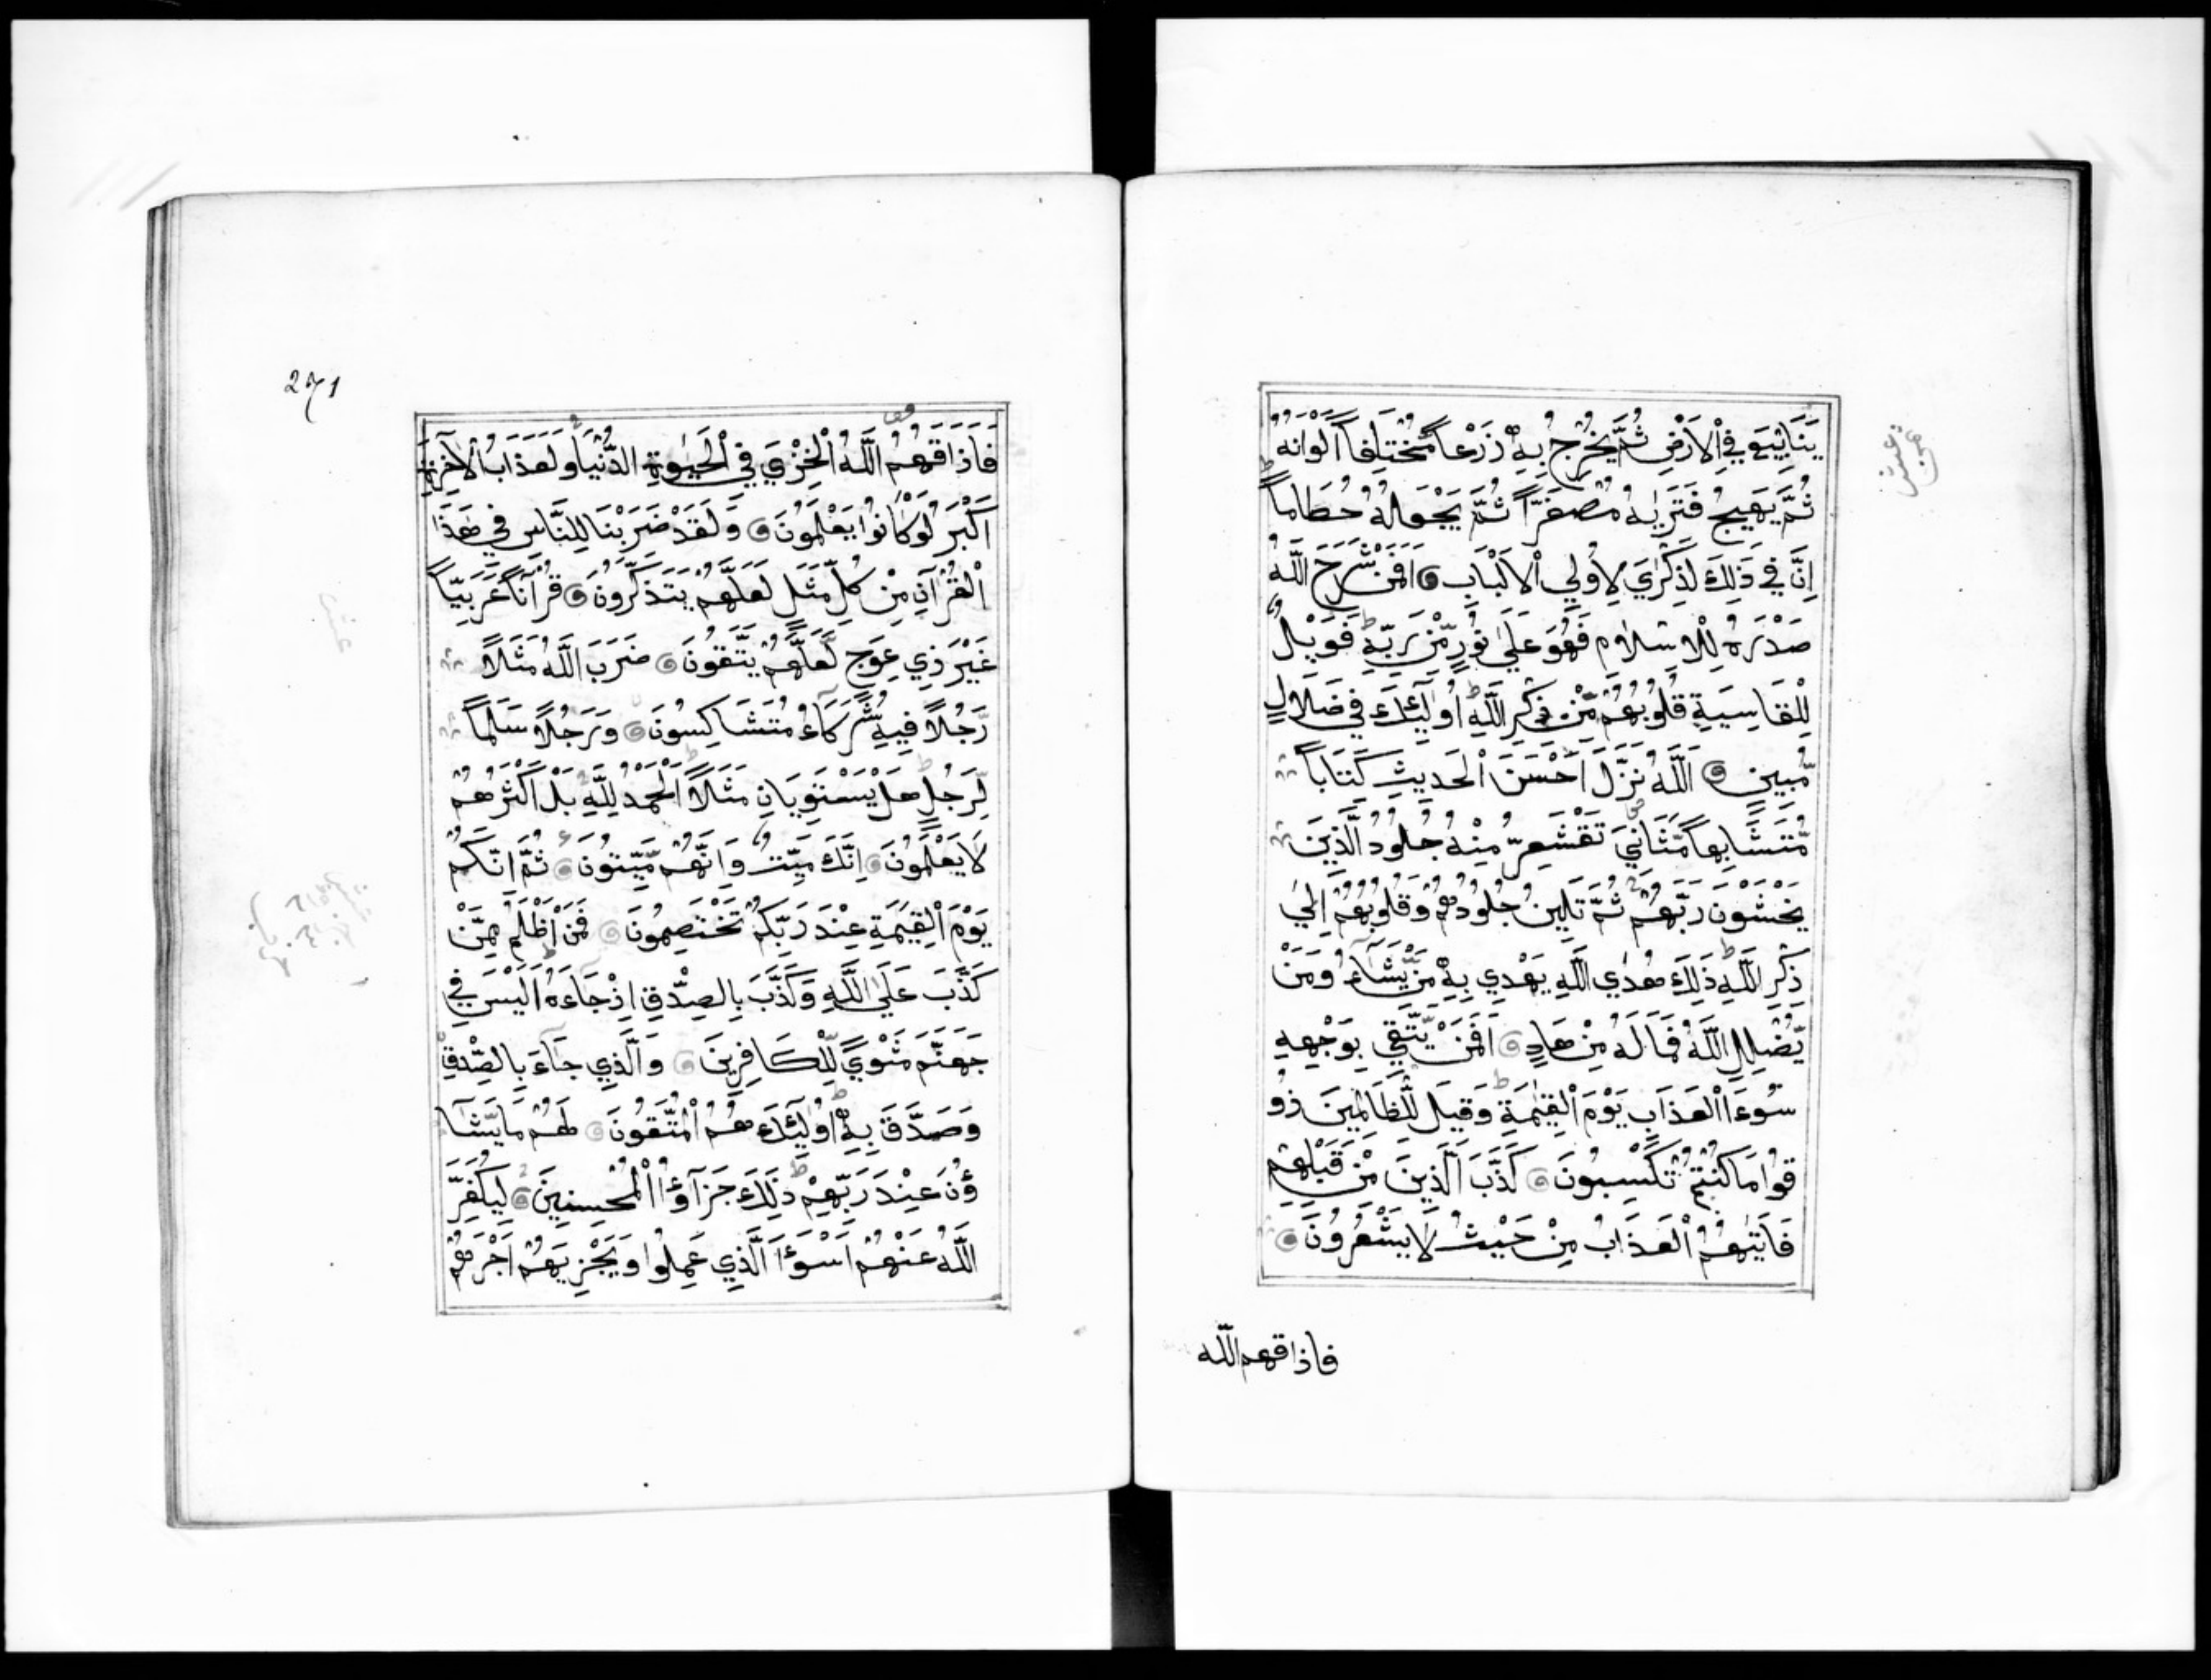 يَنَابِيعَ فِي اْلاَرْضِ ثُمَّ يُخْرِجُ بِهِ زَرْعاً مُّخْتَلِفاً اَلْوَانُهُ
ثُمَّ يَهِيجُ فَتَرٰيهُ مُصْفَرًّا ثُمَّ يَجْعَلُهُ حُطَاماً
اِنَّ فِي ذَلِكَ لَذِكْرٰي لِاُولِي اْلاَلْبَابِ اَفَمَنْ شَرَحَ اللَّهُ
صَدْرَهُ لِلْاِسْلاَمِ فَهُوَ عَلَي نُورٍ مِّنْ رَبِّهِ فَوَيْلٌ
لِلْقَاسِيَةِ قُلُوبُهُمْ مِّنْ ذِكْرِ اللَّهِ اُولٰئِكَ فِي ضَلاَلٍ
مُّبِينٍ اَللَّهُ نَزَّلَ اَحْسَنَ الْحَدِيثِ كِتَاباً
مُّتَشَابِهاً مَّثَانِيَ تَقْشَعِرُّ مِنْهُ جُلُودُ الَّذِينَ
يَخْشَوْنَ رَبَّهُمْ ثُمَّ تَلِينُ جُلُودُهُمْ وَقُلُوبُهُمْ اِلَي
ذِكْرِ اللَّهِ ذَلِكَ هُدَي اللَّهِ يَهْدِي بِهِ مَنْ يَّشَآءُ وَمَنْ
يُّضْلِلِ اللَّهُ فَمَا لَهُ مِنْ هَادٍ اَفَمَنْ يَّتَّقِي بِوَجْهِهِ
سُوءَ الْعَذَابِ يَوْمَ الْقِيٰمَةِ وَقِيلَ لِلظَّالِمِينَ ذُو
قُوا مَا كُنْتُمْ تَكْسِبُونَ كَذَّبَ الَّذِينَ مِنْ قَبْلِهِمْ
فَاَتٰيهُمُ الْعَذَابُ مِنْ حَيْثُ لاَ يَشْعُرُونَ
فاذاقهم اللّه
271
فَاَذَاقَهُمُ اللَّهُ الْخِزْيَ فِي الْحَيٰوةِ الدُّنْيَا وَلَعَذَابُ اْلآخِرَةِ
اَكْبَرُ لَوْ كَانُوا يَعْلَمُونَ وَلَقَدْ ضَرَبْنَا لِلنَّاسِ فِي هَذَا
الْقُرْآنِ مِنْ كُلِّ مَثَلٍ لَعَلَّهُمْ يَتَذَكَّرُونَ قُرْآنًا عَرَبِيّاً
غَيْرَ ذِي عِوَجٍ لَّعَلَّهُمْ يَتَّقُونَ ضَرَبَ اللَّهُ مَثَلاً
رَّجُلاً فِيهِ شُرَكَآءُ مُتَشَاكِسُونَ وَرَجُلاً سَلَماً
لِّرَجُلٍ هَلْ يَسْتَوِيَانِ مَثَلاً اَلْحَمْدُ لِلَّهِ بَلْ اَكْثَرُهُمْ
لاَ يَعْلَمُونَ اِنَّكَ مَيِّتٌ وَاِنَّهُمْ مَّيِّتُونَ ثُمَّ اِنَّكُمْ
يَوْمَ الْقِيٰمَةِ عِنْدَ رَبِّكُمْ تَخْتَصِمُونَ فَمَنْ اَظْلَمُ مِمَّنْ
كَذَّبَ عَلَي اللَّهِ وَكَذَّبَ بِالصِّدْقِ اِذْ جَآءَهُ اَلَيْسَ فِي
جَهَنَّمَ مَثْوًي لِّلْكَافِرِينَ وَالَّذِي جَآءَ بِالصِّدْقِ
وَصَدَّقَ بِهِ اُولٰئِكَ هُمُ الْمُتَّقُونَ لَهُمْ مَا يَشَآ
ؤُنَ عِنْدَ رَبِّهِمْ ذَلِكَ جَزَآؤُا الْمُحْسِنِينَ لِيُكَفِّرَ
اللَّهُ عَنْهُمْ اَسْوَءَ الَّذِي عَمِلُوا وَيَجْزِيَهُمْ اَجْرَهُمْ